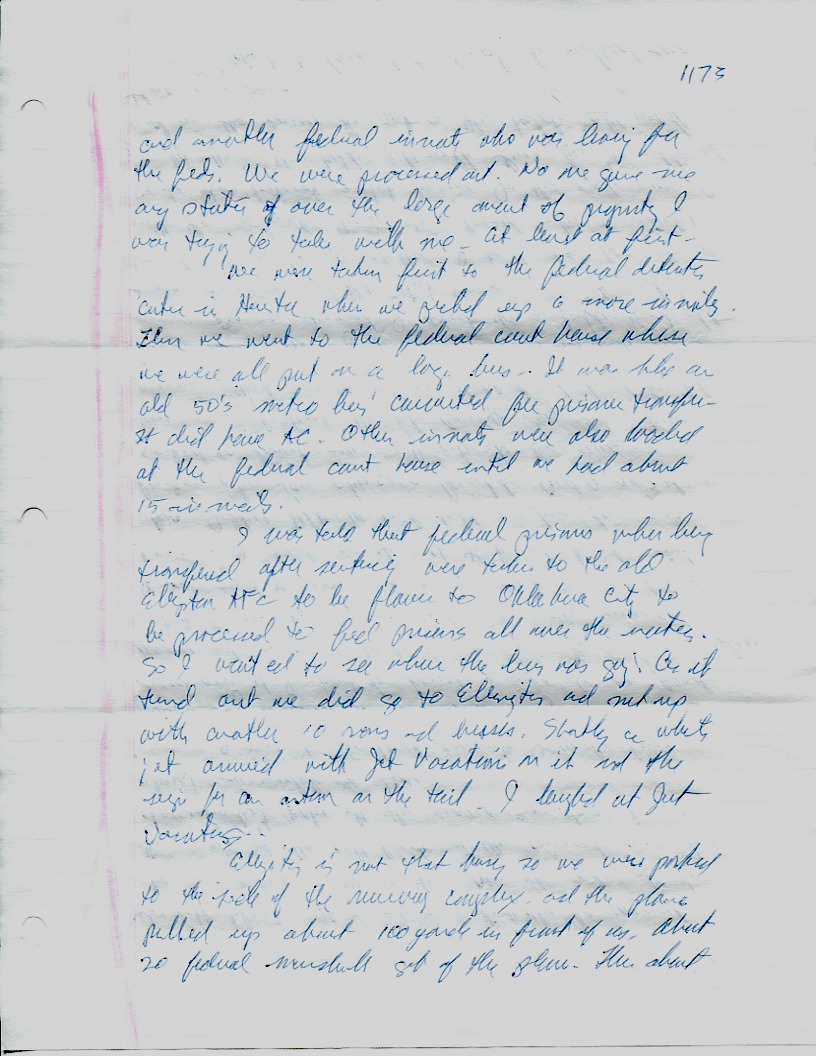 1173
and another federal inmate who was leaving for
the feds. We were processed out. No one gave me
any static over the large amount of property I
was trying to take with me - at least at first -
We were taken first to the federal detention
center in Houston where we picked up 6 more inmates.
Then we went to the federal court house where
we were all put on a large bus. It was also an
old 50's metro bus converted for prisoner transfer -
It did have AC. Other inmates were also loaded
at the federal court house until we had about
15 inmates.
I was told that federal prisoners when being
transfered after sentencing were taken to the old
Ellington AFC to be flown to Oklahoma City to
be processed to fed prisons all over the nation.
So I wanted to see where the bus was going. As it
turned out we did go to Ellington and met up
with another 10 vans and busses. Shortly a white
jet arrived with Jet Vacation on it and the
sign for an on the tail. I laughed at Jet
Vacations..
Ellington is not that busy so we were parked
to the side of the runway complex and the plane
pulled up about 100 yards in front of us. About
20 federal marshalls got of the plane. Then about